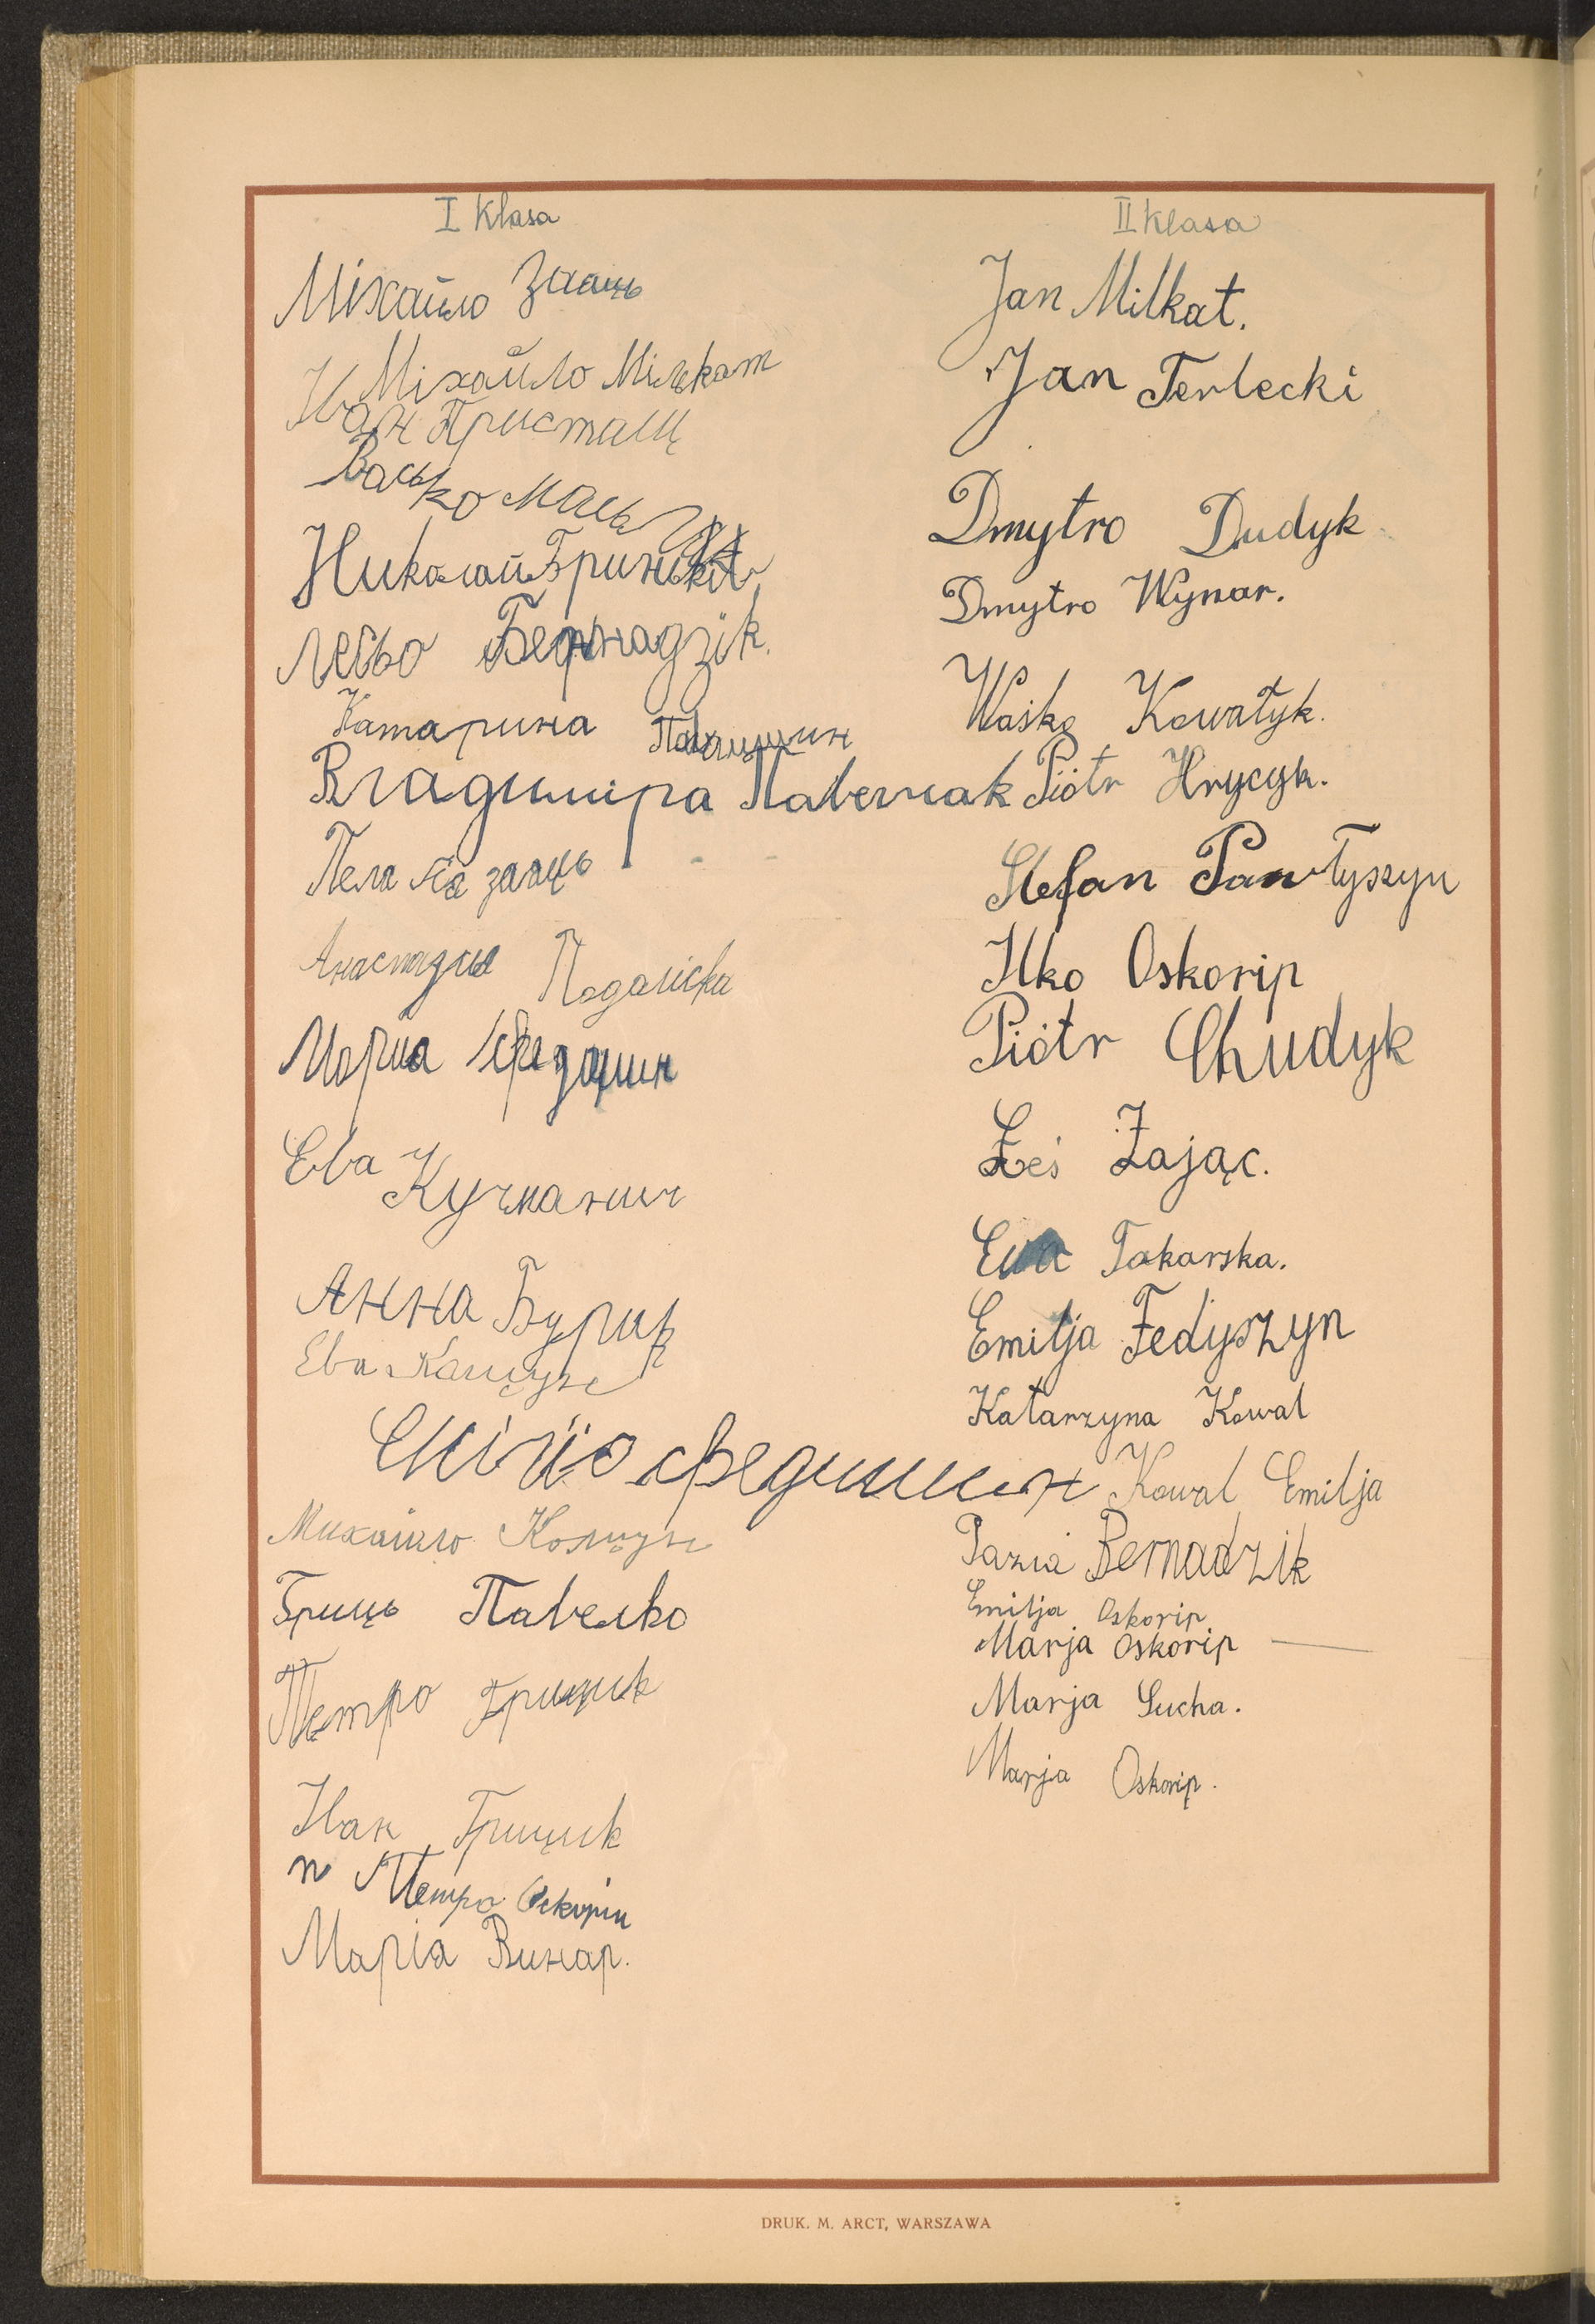 I Klasa
Міхайло Заяць
Міхайло Мількат
Іван Присташ
Васько
Николай
Лесьо Бернадзік.
Катарина Павлишин
Владиміра Павелчак
Пелагія заяць
Анастазия Подаліска
Мария
Ева Кучманич
Анна Бурик
Ева Канцун
Федишин
Михайло
Гриць Павелко
Петро Грицик
Іван Грицик
п Петро Оскоріп
Маріа Винар.
II Klasa
Jan Milkat.
Jan Terlecki
Dmytro Dudyk
Dmytro Wynar.
Waśko Kowałyk.
Piotr Hrycyk.
Stefan Pawłyszyn
Ilko Oskorip
Piotr Chudyk
Łeś Zając.
Eva Takarska.
Emilja Fedyszyn
Katarzyna Kowal
Kowal Emilja
Pazia Bernadzik
Emilja Oskorip
Marja Oskorip
Marja Sucha.
Marja Oskorip.
DRUK. M. ARCT, WARSZAWA